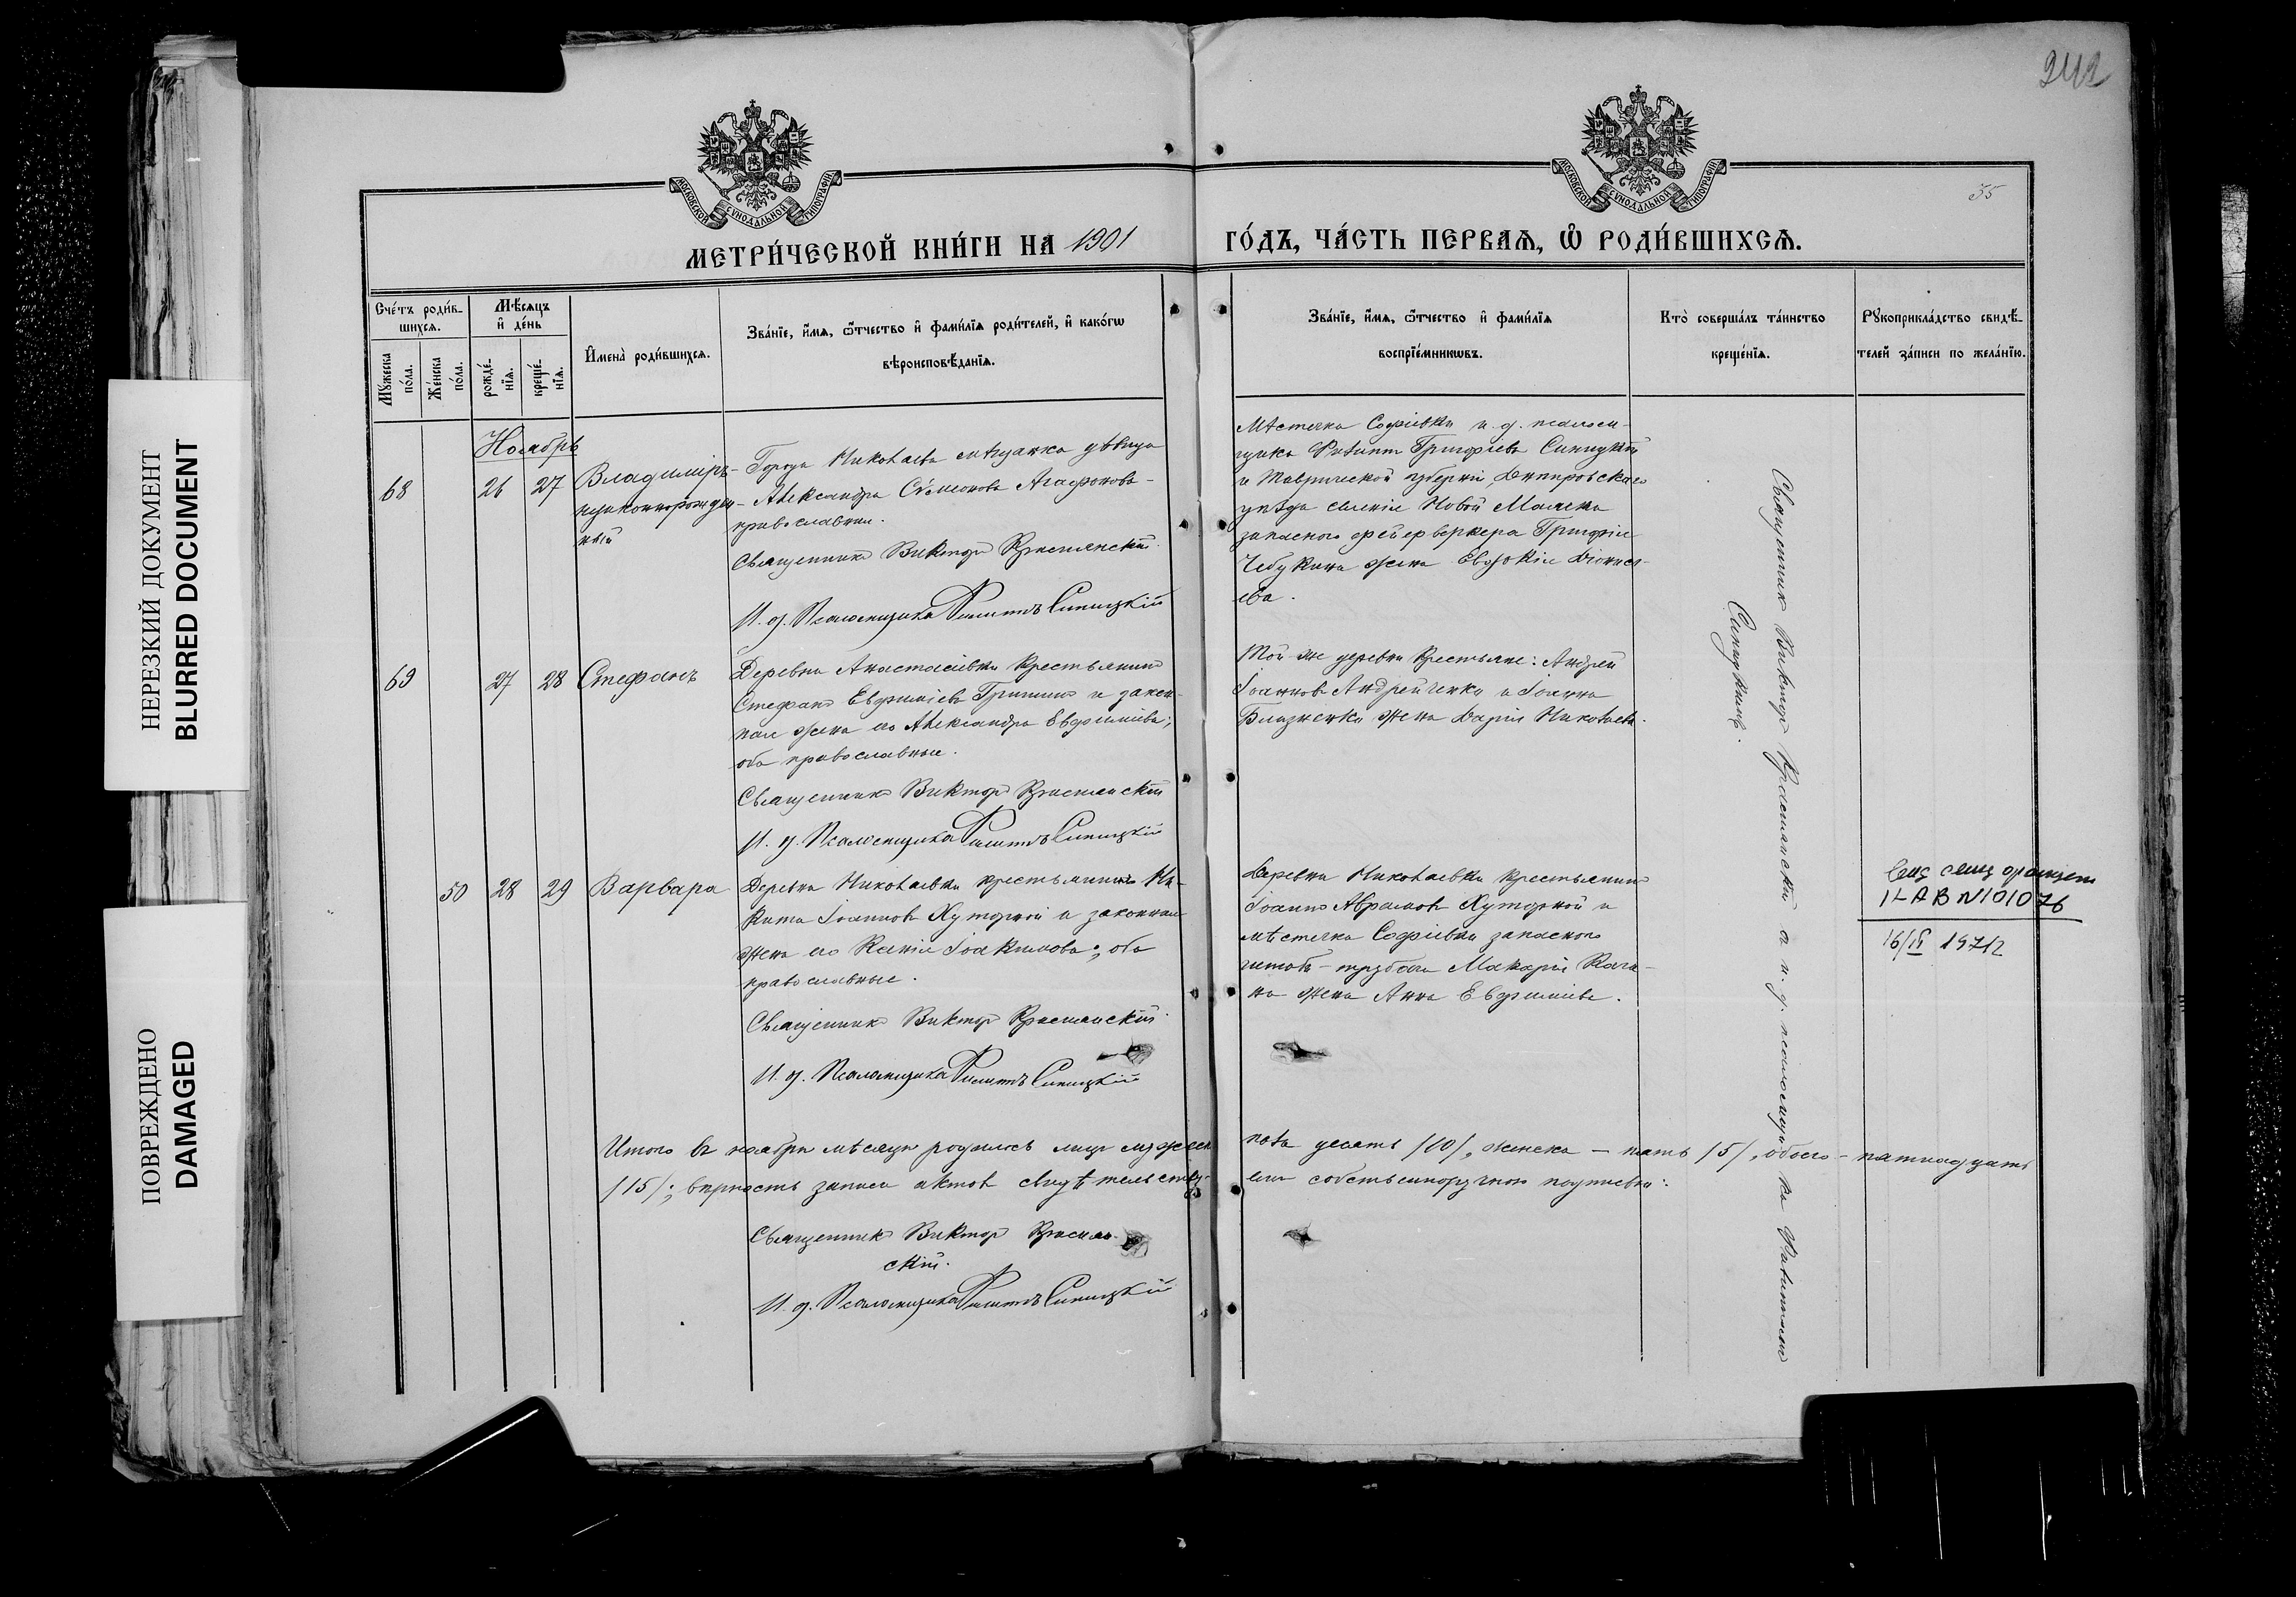 НЕРЕЗКИЙ ДОКУМЕНТ
BLURRED DOCUMENT
ПОВРЕЖДЕНО
DAMAGED
242
35
МОСКОВСКОЙ СѴНОДАЛЬНОЙ ТИПОГРАФІИ
МОСКОВСКОЙ СѴНОДАЛЬНОЙ ТИПОГРАФІИ
МЕТРИ́ЧЕСКОЙ КНИ́ГИ НА 1901
ГО́ДЪ, ЧА́СТЬ ПЕРВАѦ, Ѽ РОДИ́ВШИХСѦ.
Сче́тъ роди́в-
шихсѧ.
Мꙋжеска по́ла.
Же́нска по́ла.
Мѣсѧцъ
и де́нь
рожде́-
нїѧ.
креще́-
нїѧ.
Имена̀ роди́вшихсѧ.
Зва́нїе, и́мѧ, ѿтчество и фами́лїѧ роди́телей, и како́гѡ
вѣроисповѣ́данїѧ.
Зва́нїе, и́мѧ, ѿтчество и фами́лїѧ
воспрїе́мникѡвъ.
Кто̀ соверша́лъ та́инство
креще́нїѧ.
Рꙋкоприкла́дство свидѣ́-
телей за́писи по жела́нїю.
Ноябрь
68 26 27 Владиміръ
незаконнорожден-
ный
Города Николаева мѣщанка дѣвица
Александра Сѵмеонова Агафонова
православная.
Священникъ Викторъ Крестянскій
И. д. Псаломщика Филиппъ Синицкій
Мѣстечка Софіевки и. д. псалом-
щика Филиппъ Григоріевъ Синицкій
и Таврической губерніи, Днѣпровскаго
уѣзда селенія Новой Маячки
запаснаго фейерверкера Григорія
Чебукина жена Евдокія Діонисі-
ева.
69 27 28 Стефанъ
Деревни Анастасіевки крестьянинъ
Стефанъ Евфиміевъ Гришинъ и закон-
ная жена его Александра Евфиміева;
оба православные.
Священникъ Викторъ Крестянскій
И. д. Псаломщика Филиппъ Синицкій
Той же деревни крестьяне: Андрей
Іоанновъ Андрейченко и Іоанна
Близнечка жена Дарія Николаева.
50 28 29 Варвара
Деревни Николаевки крестьянинъ Ни-
кита Іоанновъ Хуторной и законная
жена его Ксенія Іоакимова; оба
православные.
Священникъ Викторъ Крестянскій
И. д. Псаломщика Филиппъ Синицкій
Деревни Николаевки крестьянинъ
Іоаннъ Аврамовъ Хуторной и
мѣстечка Софіевки запаснаго
штабъ-трубача Макарія Кача-
на жена Анна Евфиміева.
Священникъ Викторъ Крестянскій и и. д. псаломщика Филиппъ
Синицкій.
ILAB N101076
16/IV 1971г
Итого въ ноябрѣ мѣсяцѣ родилось лицъ мужеска
пола десять /10/, женска — пять /5/, обоего — пятнадцать
/15/; вѣрность записи актовъ свидѣтельству-
емъ собственоручною подписью:
Священникъ Викторъ Крестян-
скій.
И. д. Псаломщика Филиппъ Синицкій